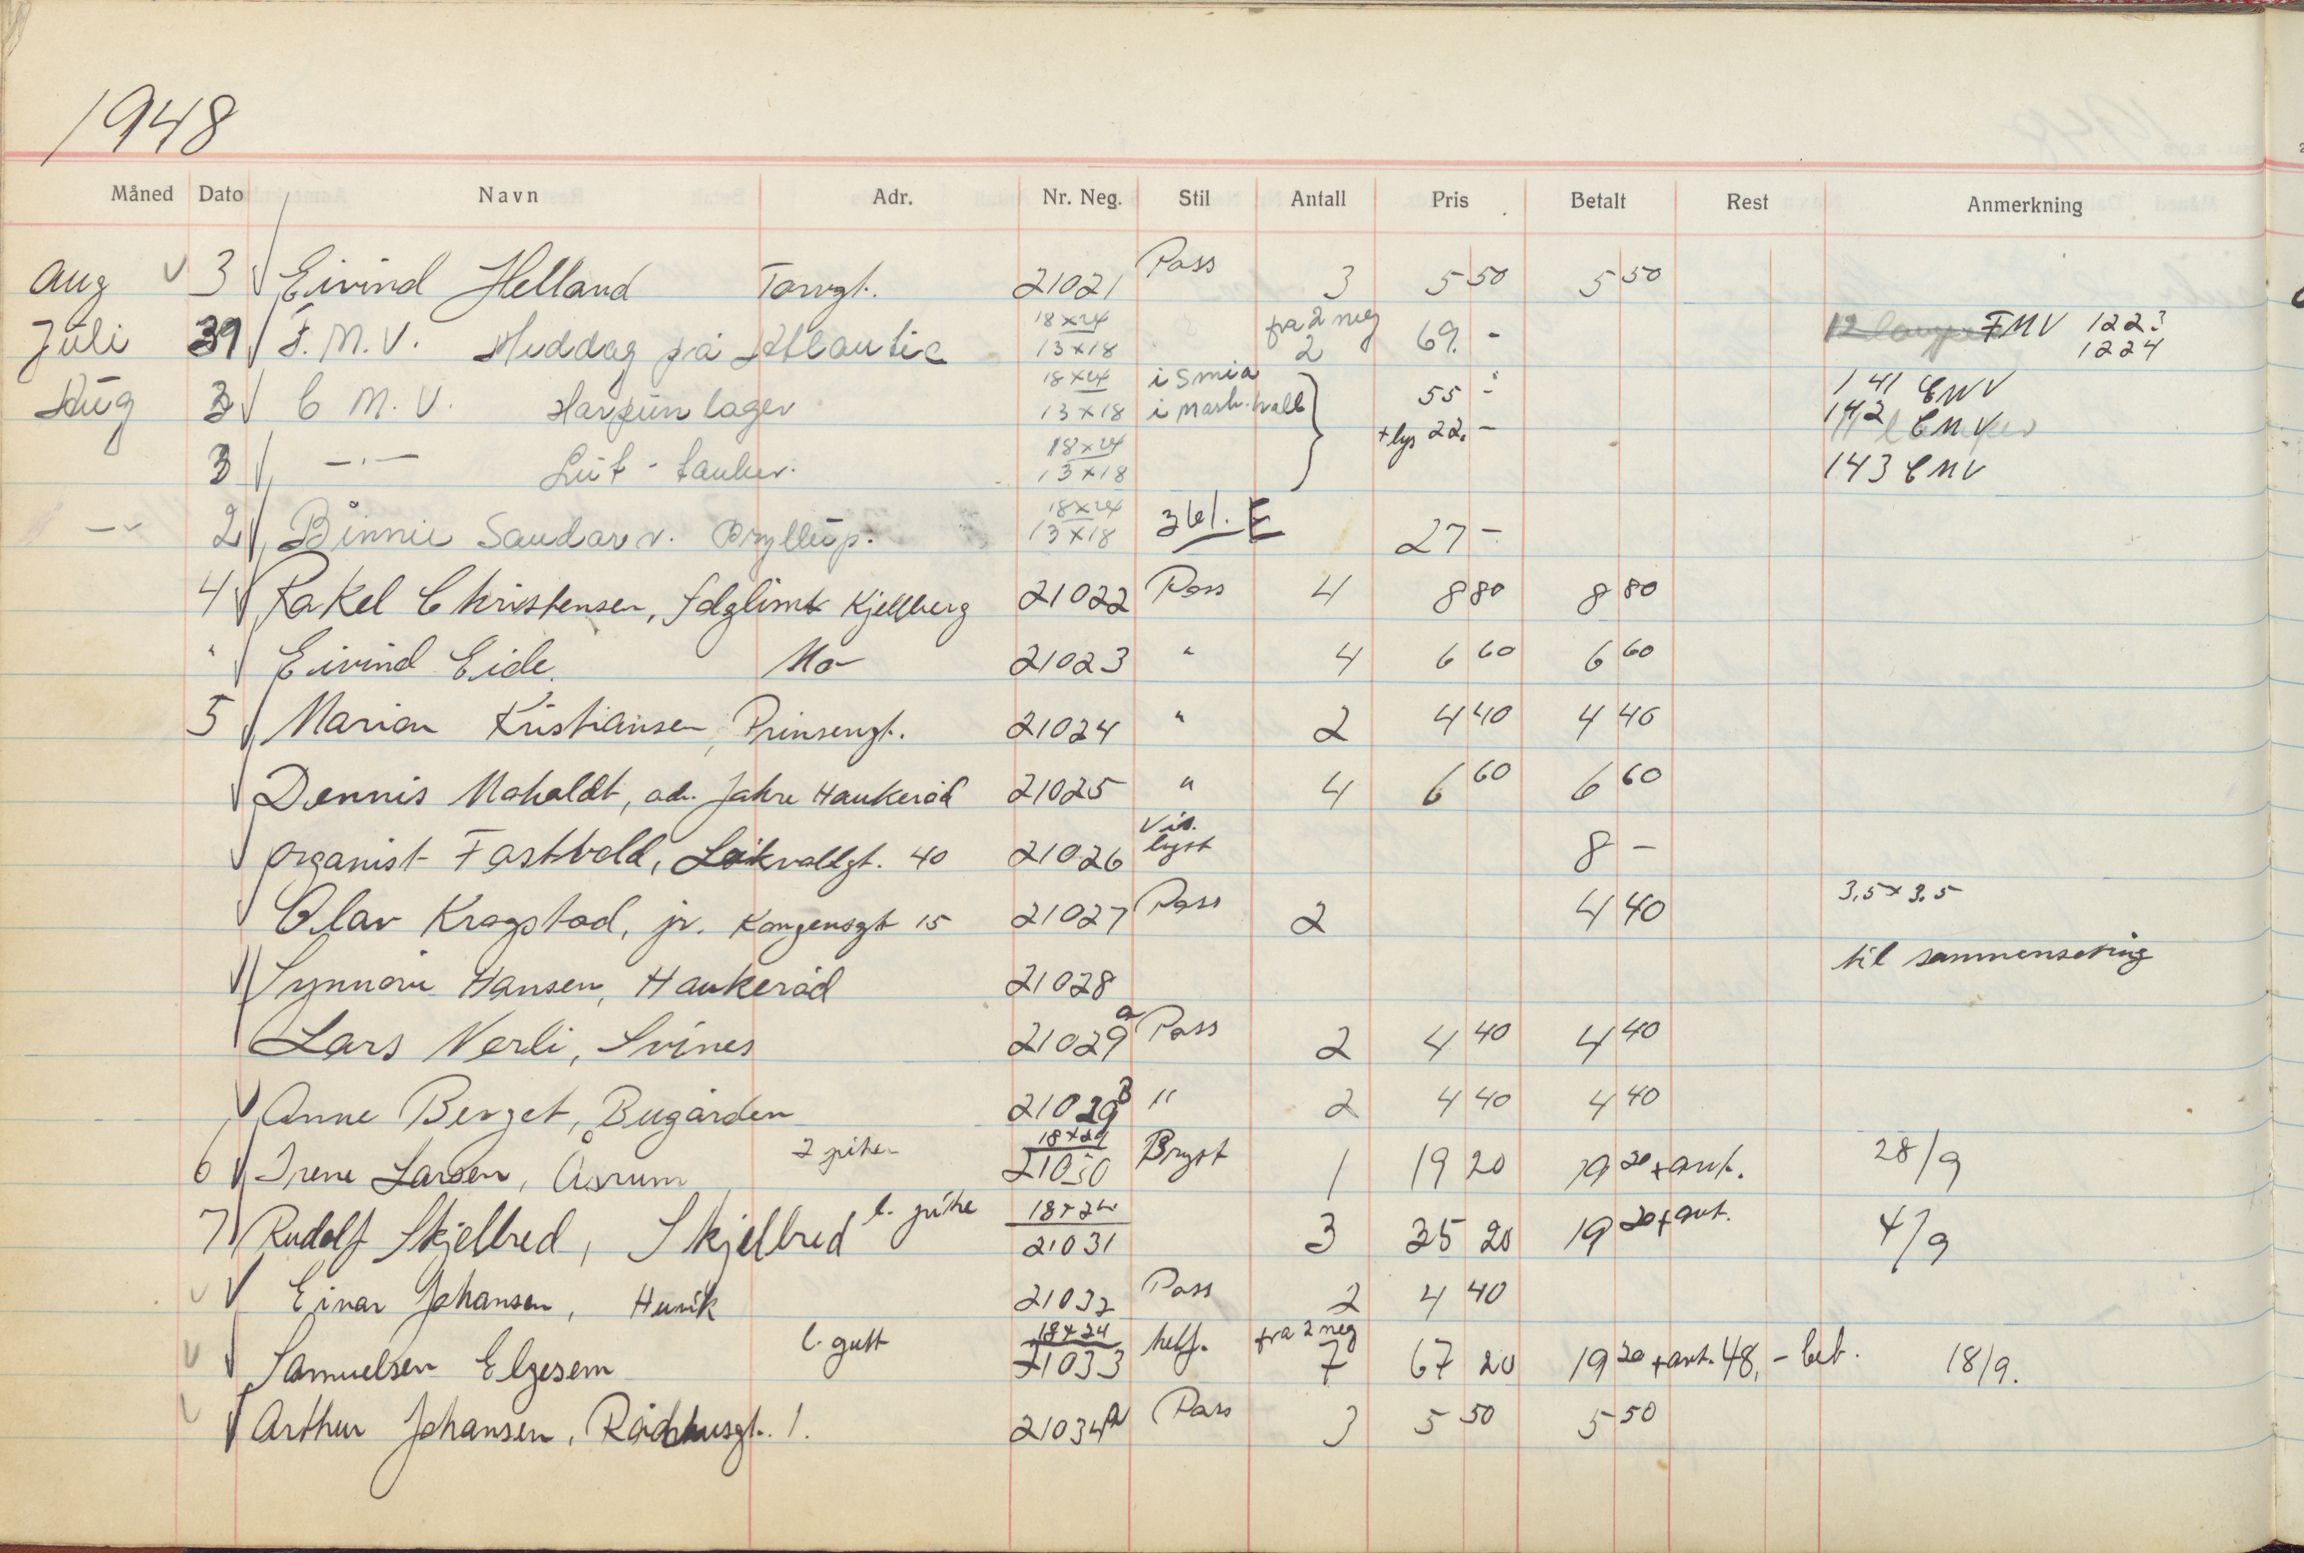 1948
Måned Dato Navn Adr. Nr. Neg. Stil Antall Pris Betalt Rest Anmerkning
Aug 3 Eivind Helland Torvgt. 21021 Pass 3 5 50 5 50
Juli 31 F.M.V. Middag på Atlantic 18x24 13x18 fra 2 neg 2 69.- FMV 1223 1224
Aug 3 C M.V. Harpun lager 18x24 13x18 i smia i mask. hall 55 - 141 CMV 142 CMV
3 —"— Luf-tanker. 18x24 13x18 + lys 22.- 143 CMV
—"— 2 Binnie Sandarv. Bryllup. 18x24 13x18 3 bl. E 27 -
4 Rakel Christensen, Solglimt Kjellberg 21022 Pass 4 8 80 8 80
" Eivind Eide. Mo 21023 " 4 6 60 6 60
5 Marion Kristiansen, Prinsengt. 21024 " 2 4 40 4 40
Dennis Moholdt, adr. Jahre Haukerød 21025 " 4 6 60 6 60
organist Fastvold, Løkvollgt. 40 21026 Vis. lyst 8 -
Olav Krogstad, jr. Kongensgt 15 21027 Pass 2 4 40 3,5 x 3,5
Synnøve Hansen, Haukerød 21028 til sammensetning
Lars Nerli, Svines 21029 a Pass 2 4 40 4 40
Anne Berget, Bugården 21029 B " 2 4 40 4 40
6 Irene Larsen, Åsrum 2 piker 18x24 21030 Bryst 1 19 20 19 20 + ant. 28/9
7 Rudolf Skjelbred, Skjelbred l. pike 18x24 21031 3 35 20 19 20 + ant. 4/9
Einar Johansen, Husvik 21032 Pass 2 4 40
Samuelsen Elgesem l. gutt 18x24 21033 helf. fra 2 neg 7 67 20 19 20 + ant. 48,- bet. 18/9.
Arthur Johansen, Rådhusgt. 1. 21034 a Pass 3 5 50 5 50